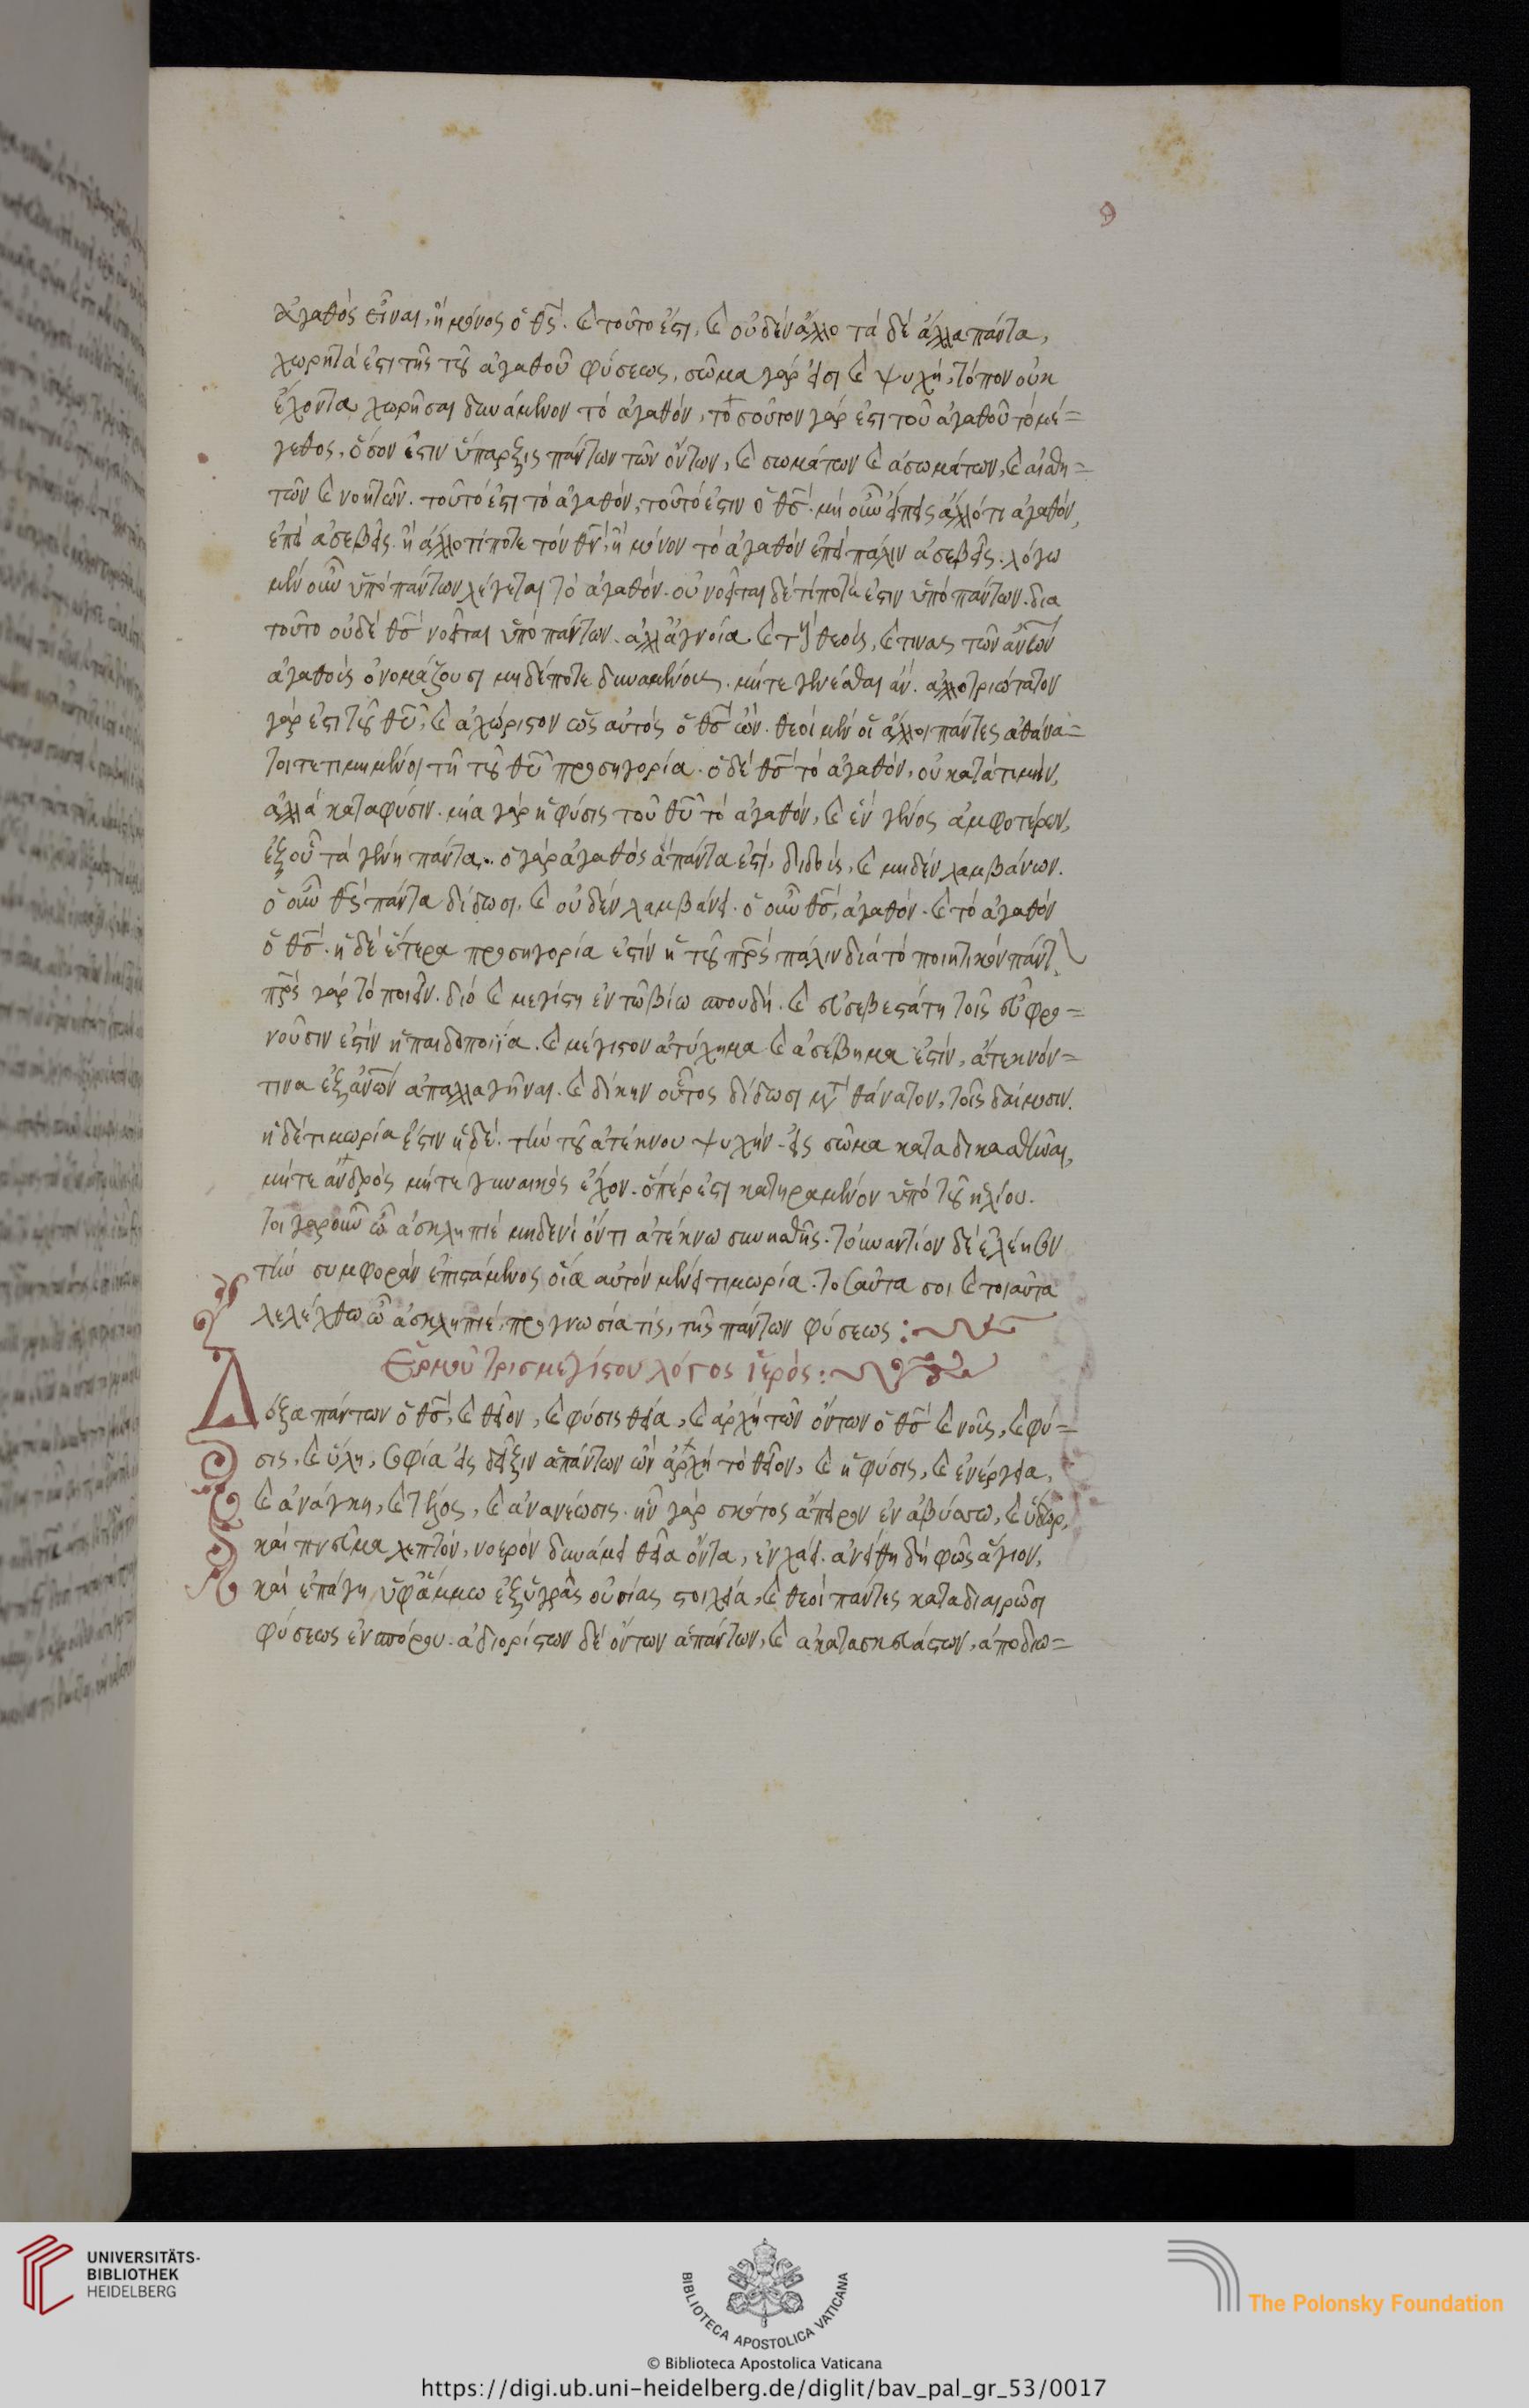 9
ἀγαθὸς εἶναι, ἢ μόνος ὁ θς̅. ϗ τοῦτο ἐστι, ϗ οὐδὲν ἄλλο τὰ δὲ ἄλλα πάντα,
χωρητά ἐστι τῆς τοῦ ἀγαθοῦ φύσεως. σῶμα γάρ εἰσι ϗ ψυχή, τόπον οὐκ
ἔχοντα χωρῆσαι δυνάμενον τὸ ἀγαθόν, τοσοῦτον γάρ ἐστι τοῦ ἀγαθοῦ τὸ μέ=
γεθος, ὅσον ἐστὶν ὕπαρξις πάντων τῶν ὄντων, ϗ σωμάτων ϗ ἀσωμάτων, ϗ αἰσθη=
τῶν ϗ νοητῶν. τοῦτό ἐστι τὸ ἀγαθόν, τοῦτό ἐστιν ὁ θς̅. μὴ οὖν εἴπῃς ἄλλό τι ἀγαθόν,
ἐπεὶ ἀσεβεῖς. ἢ ἄλλο τί ποτε τὸν θν̅, ἢ μόνον τὸ ἀγαθὸν ἐπεὶ πάλιν ἀσεβεῖς. λόγω
μὲν οὖν ὑπὸ πάντων λέγεται τὸ ἀγαθόν. οὐ νοεῖται δὲ τί ποτέ ἐστιν ὑπὸ πάντων. δια
τοῦτο οὐδὲ θς̅ νοεῖται ὑπὸ πάντων. ἀλλ' ἀγνοία ϗ τοὺς θεοὺς, ϗ τινας τῶν ἀνων̅
ἀγαθοὺς ὀνομάζουσι μηδέποτε δυναμένους. μήτε γενέσθαι ἄν. ἀλλοτριώτατον
γάρ ἐστι τοῦ θυ̅, ϗ ἀχώριστον ὡς αὐτὸς ὁ θς̅ ὤν. θεοὶ μὲν οἱ ἄλλοι πάντες ἀθάνα=
τοι τετιμημένοι τῆ τοῦ θυ̅ προσηγορία. ὁ δὲ θς̅ τὸ ἀγαθόν, οὐ κατὰ τιμήν,
ἀλλὰ κατα φύσιν. μία γὰρ ἡ φύσις τοῦ θυ̅ τὸ ἀγαθόν, ϗ ἓν γένος ἀμφοτέρων,
ἐξ οὗ τὰ γένη πάντα. ὁ γὰρ ἀγαθὸς ἅπαντα ἐστὶ, διδοὺς, ϗ μηδὲν λαμβάνων.
ὁ οὖν θς̅ πάντα δίδωσι, ϗ οὐδὲν λαμβάνει. ὁ οὖν θς̅, ἀγαθόν. ϗ τὸ ἀγαθὸν
ὁ θς̅. ἡ δὲ ἑτέρα προσηγορία ἐστὶν ἡ τοῦ πρς̅ πάλιν διὰ τὸ ποιητικὸν πάντ
πρς̅ γὰρ τὸ ποιεῖν. διὸ ϗ μεγίστη ἐν τῶ βίω σπουδή. ϗ εὐσεβεστάτη τοῖς εὐφρο=
νοῦσιν ἐστὶν ἡ παιδοποιΐα. ϗ μέγιστον ἀτύχημα ϗ ἀσέβημα ἐστὶν, ἄτεκνόν=
τινα ἐξ ἀνων̅ ἀπαλλαγῆναι. ϗ δίκην οὗτος δίδωσι μετὰ θάνατον, τοῖς δαίμοσιν.
ἡ δὲ τιμωρία ἐστὶν ἥδε. τὴν τοῦ ἀτέκνου ψυχήν. εἰς σῶμα καταδικασθῆναι,
μήτε ἀνδρὸς μήτε γυναικὸς ἔχον. ὅπέρ ἐστι κατηραμένον ὑπὸ τοῦ ἡλίου.
τοι γαροῦν ὦ ἀσκληπιὲ μηδενὶ ὄντι ἀτέκνω συνησθῆς. τοὐναντίον δὲ ἐλέησον
τὴν συμφορὰν ἐπιστάμενος οἵα αὐτὸν μένει τιμωρία. τοσαῦτα σοι ϗ τοιαῦτα
λελέχθω ὦ ἀσκληπιέ, προγνωσία τὶς, τῆς πάντων φύσεως :
Ἑρμοῦ τρισμεγίστου λόγος ἱερός:
Δόξα πάντων ὁ θς̅, ϗ θεῖον, ϗ φύσις θεία, ϗ ἀρχὴ τῶν ὄντων ὁ θς̅ ϗ νοῦς, ϗ φύ=
σις, ϗ ὕλη, σοφία εἰς δεῖξιν ἁπάντων ὢν ἀρχὴ τὸ θεῖον, ϗ ἡ φύσις, ϗ ἐνέργεια,
ϗ ἀνάγκη, ϗ τέλος, ϗ ἀνανέωσις. ἦν γὰρ σκότος ἄπειρον ἐν ἀβύσσω, ϗ ὕδωρ,
καὶ πνεῦμα λεπτόν, νοερὸν δυνάμει θεία ὄντα, ἐν χάει. ἀνείθη δὴ φῶς ἅγιον,
καὶ ἐπάγη ὑφ' ἅμμω ἐξ ὑγρᾶς οὐσίας στοιχεῖα, ϗ θεοὶ πάντες καταδιαιρῶσι
φύσεως ἐνσπόρου. ἀδιορίστων δὲ ὄντων ἁπάντων, ϗ ἀκατασκευάστων, ἀποδιω=
UNIVERSITÄTS-
BIBLIOTHEK
HEIDELBERG
BIBLIOTECA APOSTOLICA VATICANA
© Biblioteca Apostolica Vaticana
The Polonsky Foundation
https://digi.ub.uni-heidelberg.de/diglit/bav_pal_gr_53/0017